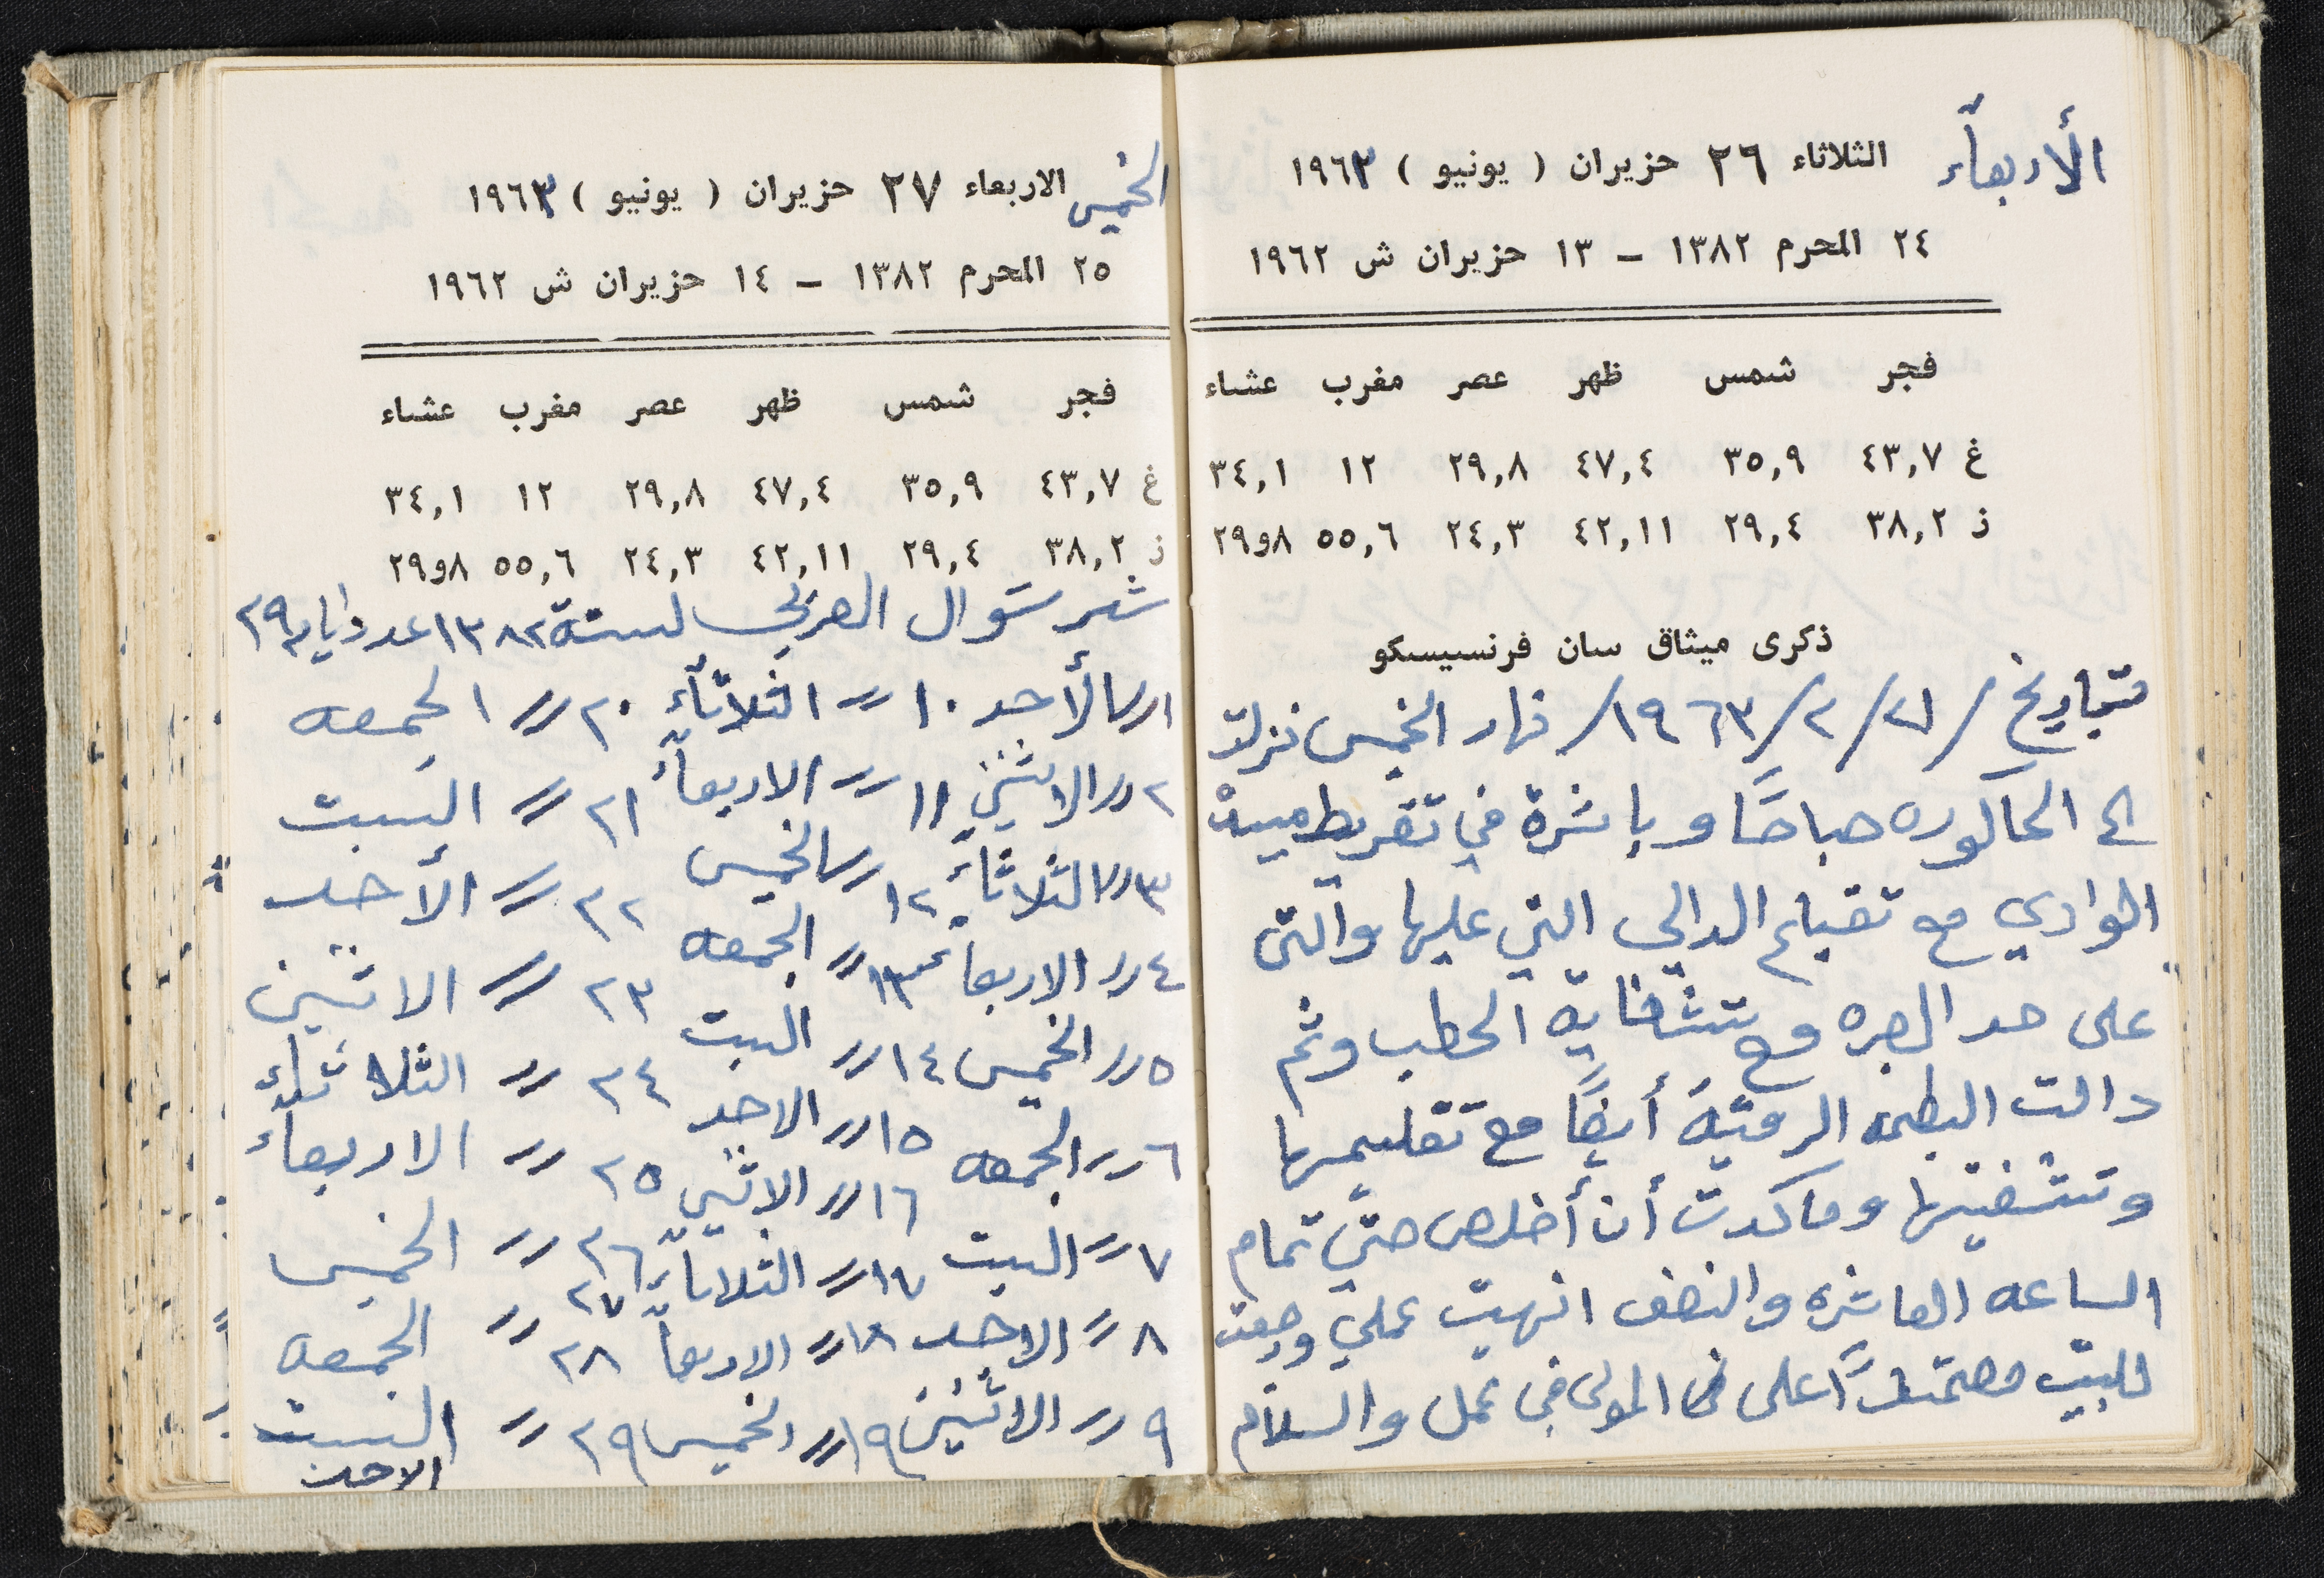 الأربعاء الثلاثاء ٢٦ حزيران ( يونيو ) ١٩٦٣
٢٤ المحرم ١٣٨٢ – ١٣ حزيران ش ١٩٦٢
فجر شمس ظهر عصر مغرب عشاء
غ ٤٣,٧ ٣٥,٩ ٤٧,٤ ٢٩,٨ ١٢ ٣٤,١
ز ٣٨,٢ ٢٩,٤ ٤٢,١١ ٢٤,٣ ٥٥,٦ ٨و٢٩
ذكرى ميثاق سان فرنسيسكو
فبتاريخ /٢١/٢/١٩٦٣/ نهار الخميس نزلت
الى الحاكوره صباحًا وباشرة في تقريط ميسة
الوادي مع تقيام الدالي التي عليها والتى
على حد الجره مع تشقاية الحطب وثم
دالت البطمه الرميّة أيضًا مع تقليمها
وتشقيتها وما كدت أن أخلص حتى تمام
الساعه العاشره والنصف انهيت عملي ورجعت
للبيت معتمدًا على المولى في عمل والسلام
الخميس الاربعاء ٢٧ حزيران ( يونيو ) ١٩٦٣
٢٥ المحرم ١٣٨٢ – ١٤ حزيران ش ١٩٦٢
فجر شمس ظهر عصر مغرب عشاء
غ ٤٣,٧ ٣٥,٩ ٤٧,٤ ٢٩,٨ ١٢ ٣٤,١
ز ٣٨,٢ ٢٩,٤ ٤٢,١١ ٢٤,٣ ٥٥,٦ ٨و٢٩
شهر شوال العربي لسنة ١٣٨٢ عدد أيامه ٢٩
١ // الأحد ١٠ // الثلاثاء ٢٠ // الجمعه
٢ // الاثنين ١١ // الاربعاء ٢١ // السبت
٣ // الثلاثاء ١٢ // الخميس ٢٢ // الأحد
٤ // الاربعاء ١٣ // الجمعه ٢٣ // الاثنين
٥ // الخميس ١٤ // السبت ٢٤ // الثلاثاء
٦ // الجمعه ١٥ // الاحد ٢٥ // الاربعاء
٧ // السبت ١٦ // الاثنين ٢٦ // الخميس
٨ // الاحد ١٧ // الثلاثاء ٢٧ // الجمعه
٩ // الاثنين ١٨ // الاربعاء ٢٨ // السبت
١٩ // الخميس ٢٩ // الاحد